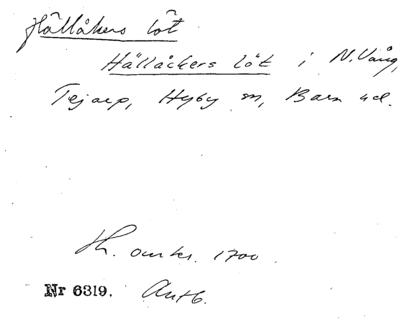 Hällåkers löt
Hällåckers löt i N. Vång,
Tejarp, Hyby sn, Bara hd.
Th. omkr. 1700.
Nr 6319. Avtb.